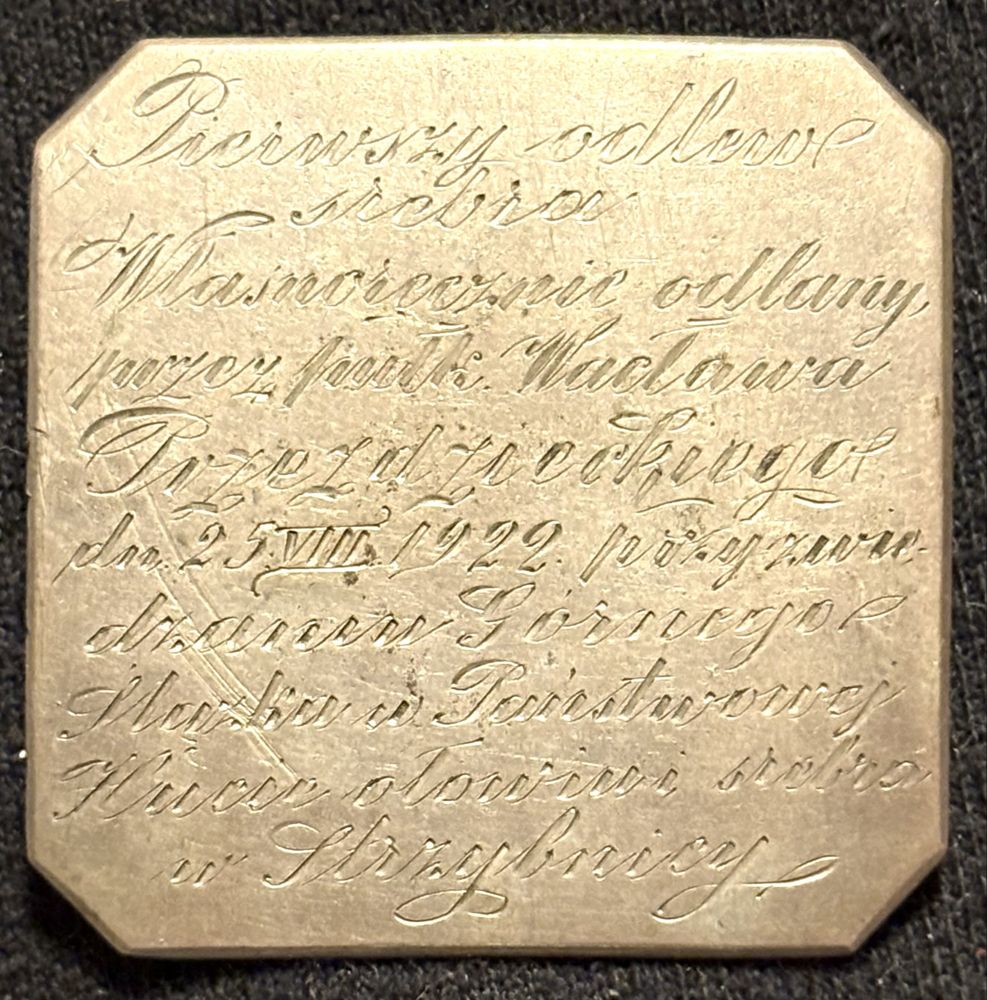 Pierwszy odlew
srebra
Własnoręcznie odlany,
przez pułk. Wacława
Przezdzieckiego
dn. 25 VIII 1922. przy zwie-
dzaniu Górnego
Śląska w Państwowej
Hucie ołowiu i srebra
w Strzybnicy